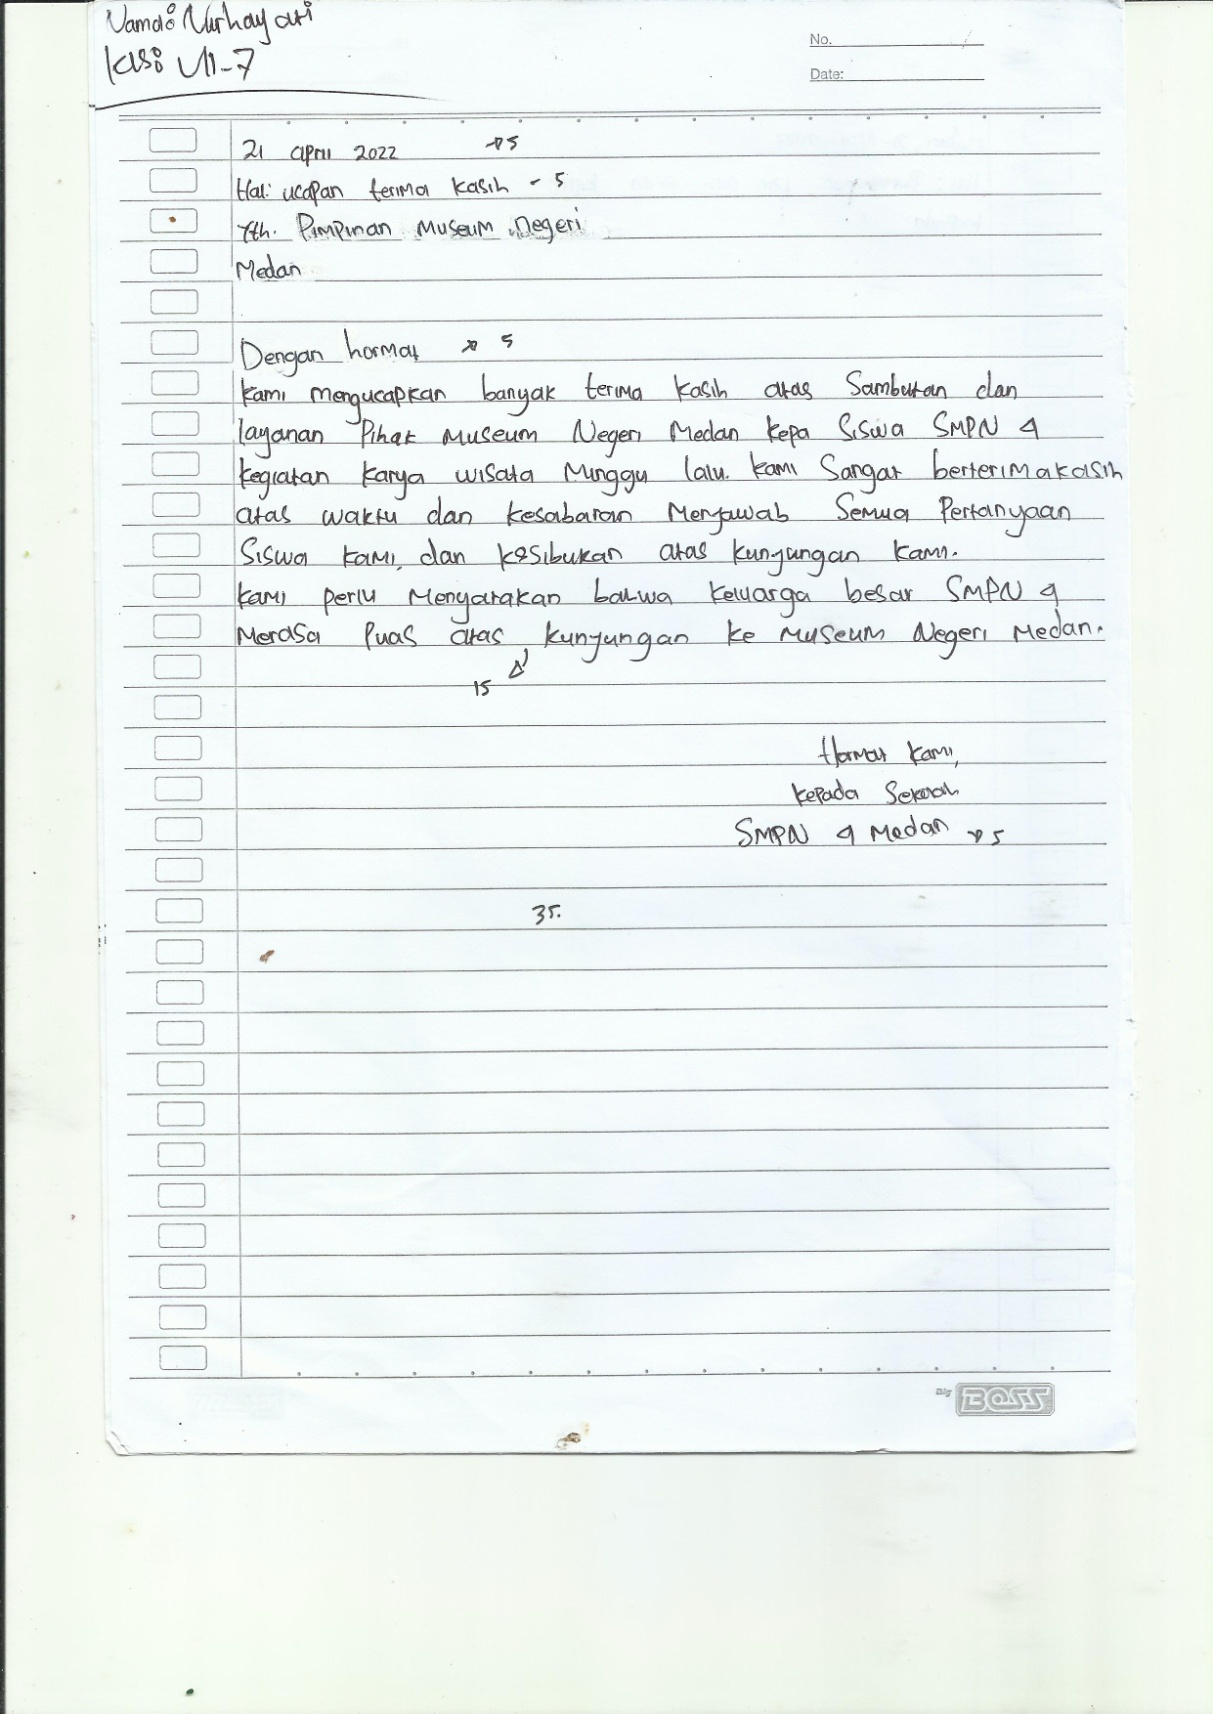 Nama: Nurhayati
Kls: VII-7
No.
Date:
21 april 2022 → 5
Hal: ucapan terima kasih - 5
Yth. Pimpinan Museum Negeri
Medan
Dengan hormat → 5
kami mengucapkan banyak terima kasih atas Sambutan dan
layanan Pihak Museum Negeri Medan kepa Siswa SMPN 4
kegiatan karya wisata Minggu lalu. kami Sangat berterimakasih
atas waktu dan kesabaran Menjawab Semua Pertanyaan
Siswa kami, dan kesibukan atas kunjungan kami.
kami perlu Menyatakan bahwa keluarga besar SMPN 4
Merasa Puas atas kunjungan ke Museum Negeri Medan.
15
Hormat kami,
kepada Sekolah
SMPN 4 Medan → 5
35.
Big BOSS